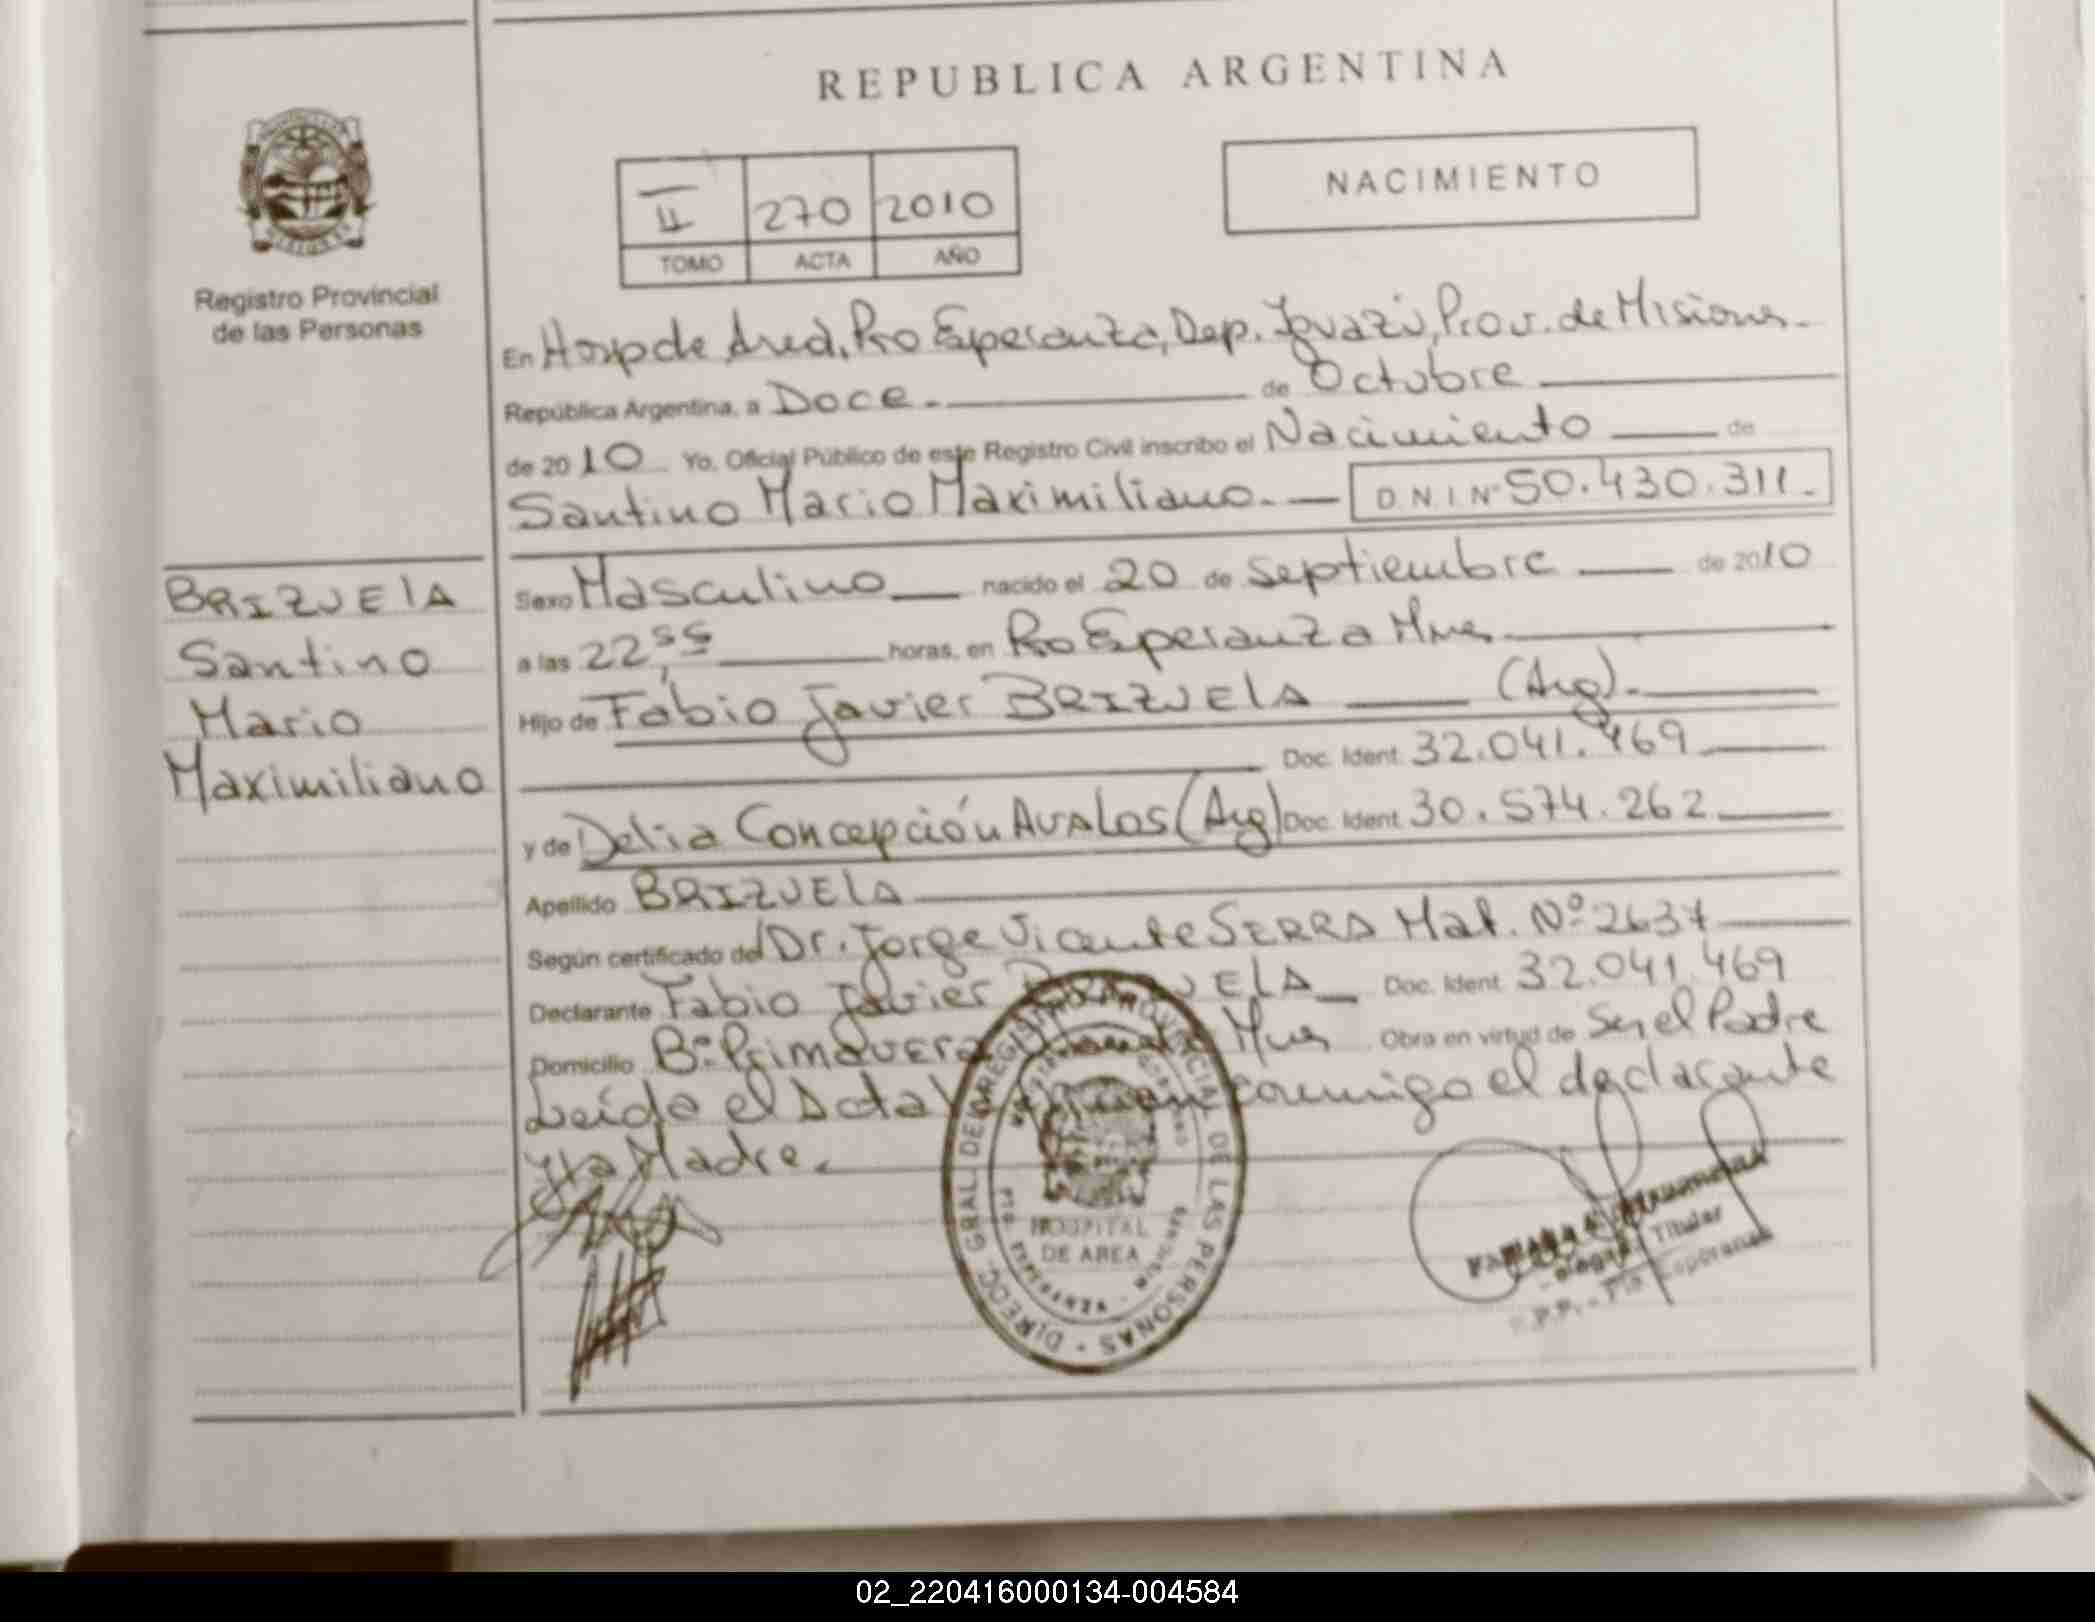 REPUBLICA ARGENTINA
II 270 2010
TOMO ACTA AÑO
NACIMIENTO
Registro Provincial
de las Personas
En Hosp de Area, Pto Esperanza, Dep. Iguazú, Prov. de Misiones.
República Argentina, a Doce. de Octubre
de 2010 Yo, Oficial Público de este Registro Civil inscribo el Nacimiento de
Santino Mario Maximiliano. D N I Nº 50.430.311.
BRIZUELA
Santino
Mario
Maximiliano
Sexo Masculino nacido el 20 de Septiembre de 2010
a las 22,55 horas, en Pto Esperanza Mnes
Hijo de Fabio Javier BRIZUELA (Arg).
Doc. Ident. 32.041.469
y de Delia Concepción AVALOS (Arg) Doc. Ident. 30.574.262
Apellido BRIZUELA
Según certificado del Dr. Jorge Vicente SERRA Mat. Nº 2637
Declarante Fabio Javier BRIZUELA Doc. Ident. 32.041.469
Domicilio Bº Primavera Mnes Obra en virtud de Ser el Padre
Leída el Acta conmigo el declarante
y la Madre.
DIRECC. GRAL. DEL REGISTRO PROVINCIAL DE LAS PERSONAS
HOSPITAL
DE AREA
Titular
R.P.P. - Pto Esperanza
02_220416000134-004584